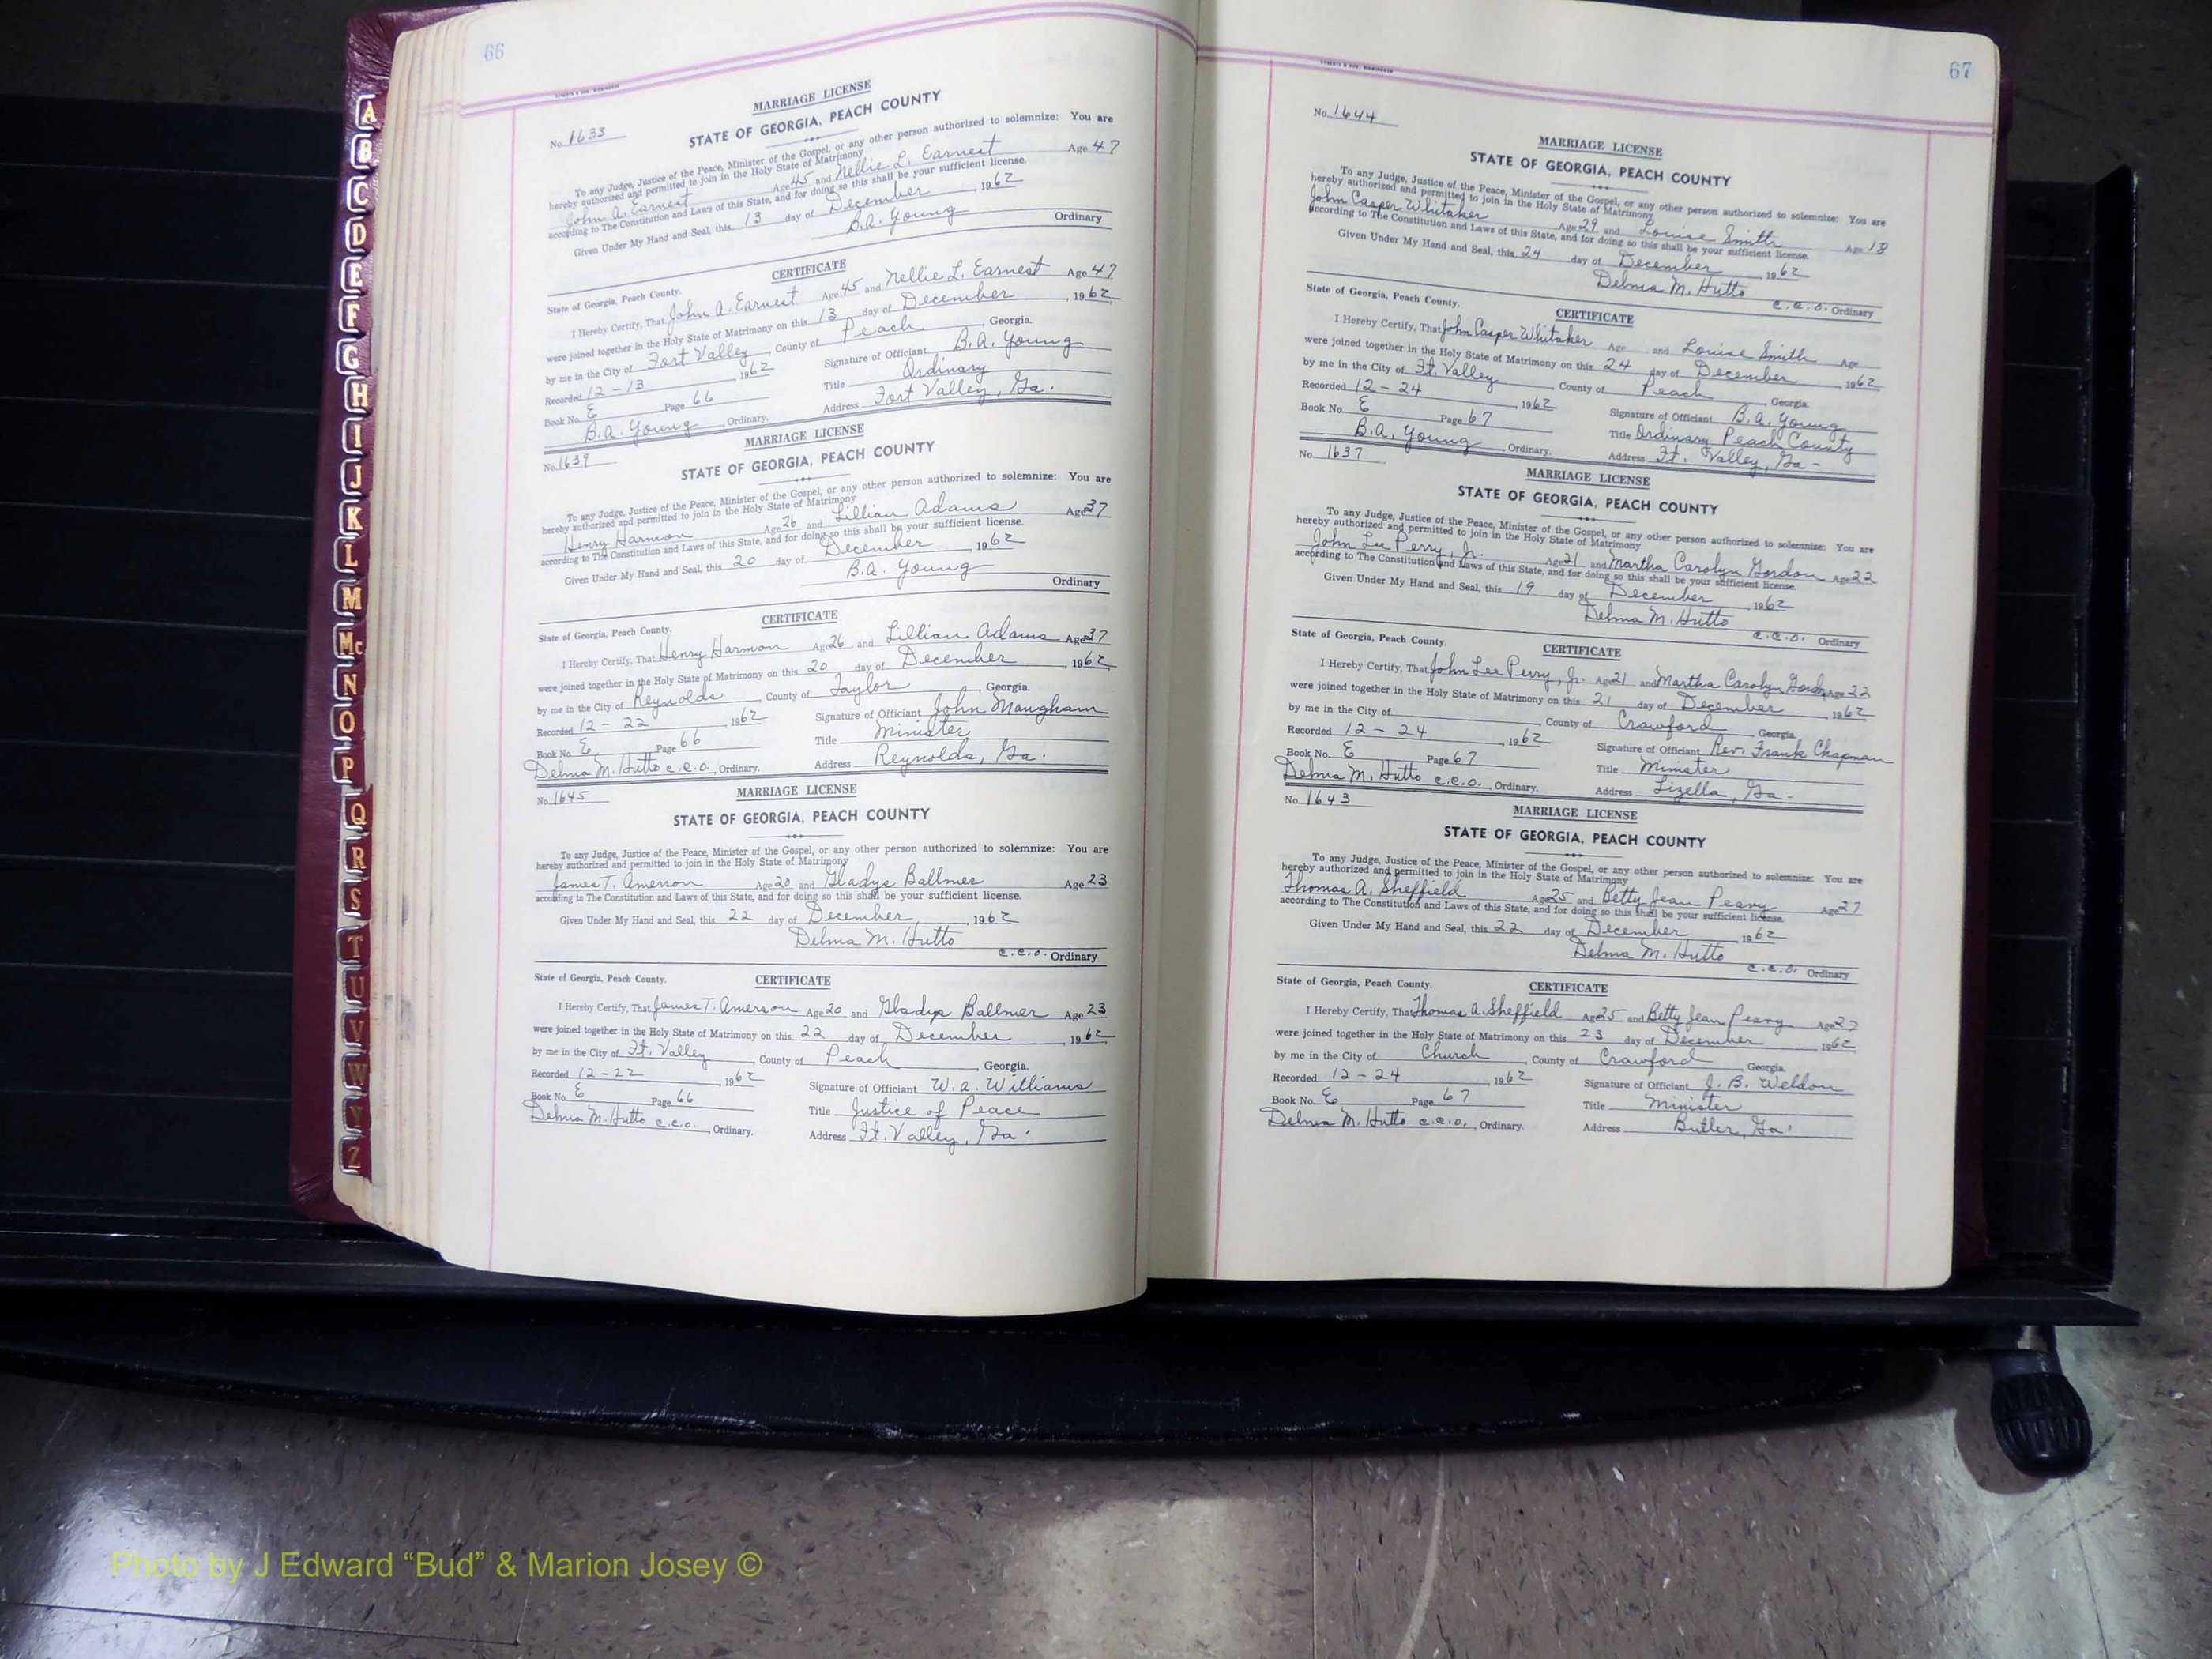 66
MARRIAGE LICENSE
No. 1633
STATE OF GEORGIA, PEACH COUNTY
To any Judge, Justice of the Peace, Minister of the Gospel, or any other person authorized to solemnize: You are
hereby authorized and permitted to join in the Holy State of Matrimony
John A. Earnest Age 45 and Nellie L. Earnest Age 47
according to The Constitution and Laws of this State, and for doing so this shall be your sufficient license.
Given Under My Hand and Seal, this 13 day of December, 1962
B.A. Young Ordinary
CERTIFICATE
State of Georgia, Peach County.
I Hereby Certify, That John A. Earnest Age 45 and Nellie L. Earnest Age 47
were joined together in the Holy State of Matrimony on this 13 day of December, 1962
by me in the City of Fort Valley, County of Peach, Georgia.
Recorded 12-13, 1962 Signature of Officiant B.A. Young
Book No. E Page 66 Title Ordinary
B.A. Young, Ordinary. Address Fort Valley, Ga.
MARRIAGE LICENSE
No. 1639
STATE OF GEORGIA, PEACH COUNTY
To any Judge, Justice of the Peace, Minister of the Gospel, or any other person authorized to solemnize: You are
hereby authorized and permitted to join in the Holy State of Matrimony
Henry Harmon Age 26 and Lillian Adams Age 37
according to The Constitution and Laws of this State, and for doing so this shall be your sufficient license.
Given Under My Hand and Seal, this 20 day of December, 1962
B.A. Young
Ordinary
CERTIFICATE
State of Georgia, Peach County.
I Hereby Certify, That Henry Harmon Age 26 and Lillian Adams Age 37
were joined together in the Holy State of Matrimony on this 20 day of December, 1962
by me in the City of Reynolds, County of Taylor, Georgia.
Recorded 12-22, 1962 Signature of Officiant John Maugham
Book No. E Page 66 Title Minister
Delma M. Hutto c.c.o., Ordinary. Address Reynolds, Ga.
MARRIAGE LICENSE
No. 1645
STATE OF GEORGIA, PEACH COUNTY
To any Judge, Justice of the Peace, Minister of the Gospel, or any other person authorized to solemnize: You are
hereby authorized and permitted to join in the Holy State of Matrimony
James T. Amerson Age 20 and Gladys Ballmer Age 23
according to The Constitution and Laws of this State, and for doing so this shall be your sufficient license.
Given Under My Hand and Seal, this 22 day of December, 1962
Delma M. Hutto
c.c.o. Ordinary
State of Georgia, Peach County. CERTIFICATE
I Hereby Certify, That James T. Amerson Age 20 and Gladys Ballmer Age 23
were joined together in the Holy State of Matrimony on this 22 day of December, 1962
by me in the City of Ft. Valley, County of Peach, Georgia.
Recorded 12-22, 1962 Signature of Officiant W.A. Williams
Book No. E Page 66 Title Justice of Peace
Delma M. Hutto c.c.o., Ordinary. Address Ft. Valley, Ga.
67
No. 1644
MARRIAGE LICENSE
STATE OF GEORGIA, PEACH COUNTY
To any Judge, Justice of the Peace, Minister of the Gospel, or any other person authorized to solemnize: You are
hereby authorized and permitted to join in the Holy State of Matrimony
John Casper Whitaker Age 29 and Louise Smith Age 18
according to The Constitution and Laws of this State, and for doing so this shall be your sufficient license.
Given Under My Hand and Seal, this 24 day of December, 1962
Delma M. Hutto
c.c.o. Ordinary
CERTIFICATE
State of Georgia, Peach County.
I Hereby Certify, That John Casper Whitaker Age and Louise Smith Age
were joined together in the Holy State of Matrimony on this 24 day of December, 1962
by me in the City of Ft. Valley, County of Peach, Georgia.
Recorded 12-24, 1962 Signature of Officiant B.A. Young
Book No. E Page 67 Title Ordinary Peach County
B.A. Young, Ordinary. Address Ft. Valley, Ga-
No. 1637
MARRIAGE LICENSE
STATE OF GEORGIA, PEACH COUNTY
To any Judge, Justice of the Peace, Minister of the Gospel, or any other person authorized to solemnize: You are
hereby authorized and permitted to join in the Holy State of Matrimony
John Lee Perry, Jr. Age 21 and Martha Carolyn Gordon Age 22
according to The Constitution and Laws of this State, and for doing so this shall be your sufficient license.
Given Under My Hand and Seal, this 19 day of December, 1962
Delma M. Hutto
c.c.o. Ordinary
State of Georgia, Peach County. CERTIFICATE
I Hereby Certify, That John Lee Perry, Jr. Age 21 and Martha Carolyn Gordon Age 22
were joined together in the Holy State of Matrimony on this 21 day of December, 1962
by me in the City of, County of Crawford, Georgia.
Recorded 12-24, 1962 Signature of Officiant Rev. Frank Chapman
Book No. E Page 67 Title Minister
Delma M. Hutto c.c.o., Ordinary. Address Lizella, Ga-
No. 1643
MARRIAGE LICENSE
STATE OF GEORGIA, PEACH COUNTY
To any Judge, Justice of the Peace, Minister of the Gospel, or any other person authorized to solemnize: You are
hereby authorized and permitted to join in the Holy State of Matrimony
Thomas A. Sheffield Age 25 and Betty Jean Peavy Age 27
according to The Constitution and Laws of this State, and for doing so this shall be your sufficient license.
Given Under My Hand and Seal, this 22 day of December, 1962
Delma M. Hutto
c.c.o. Ordinary
State of Georgia, Peach County. CERTIFICATE
I Hereby Certify, That Thomas A. Sheffield Age 25 and Betty Jean Peavy Age 27
were joined together in the Holy State of Matrimony on this 23 day of December, 1962
by me in the City of Church, County of Crawford, Georgia.
Recorded 12-24, 1962 Signature of Officiant J. B. Weldon
Book No. E Page 67 Title Minister
Delma M. Hutto c.c.o., Ordinary. Address Butler, Ga.
A
B
C
D
E
F
G
H
I
J
K
L
M
Mc
N
O
P
Q
R
S
T
U
V
W
Y
Z
Photo by J Edward “Bud” & Marion Josey ©